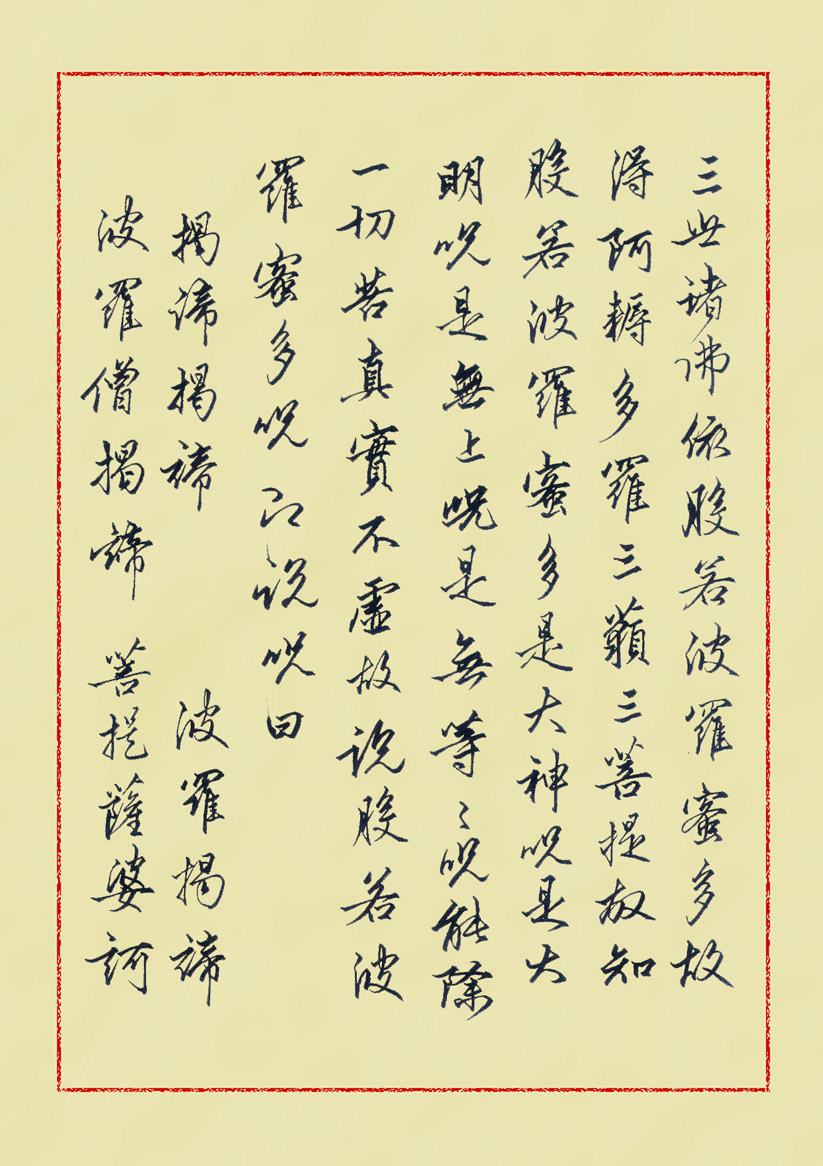 三世諸佛依般若波羅蜜多故
得阿耨多羅三藐三菩提故知
般若波羅蜜多是大神咒是大
明咒是無上咒是無等々咒能除
一切苦真實不虛故說般若波
羅蜜多咒即說咒曰
揭諦揭諦 波羅揭諦
波羅僧揭諦 菩提薩婆訶